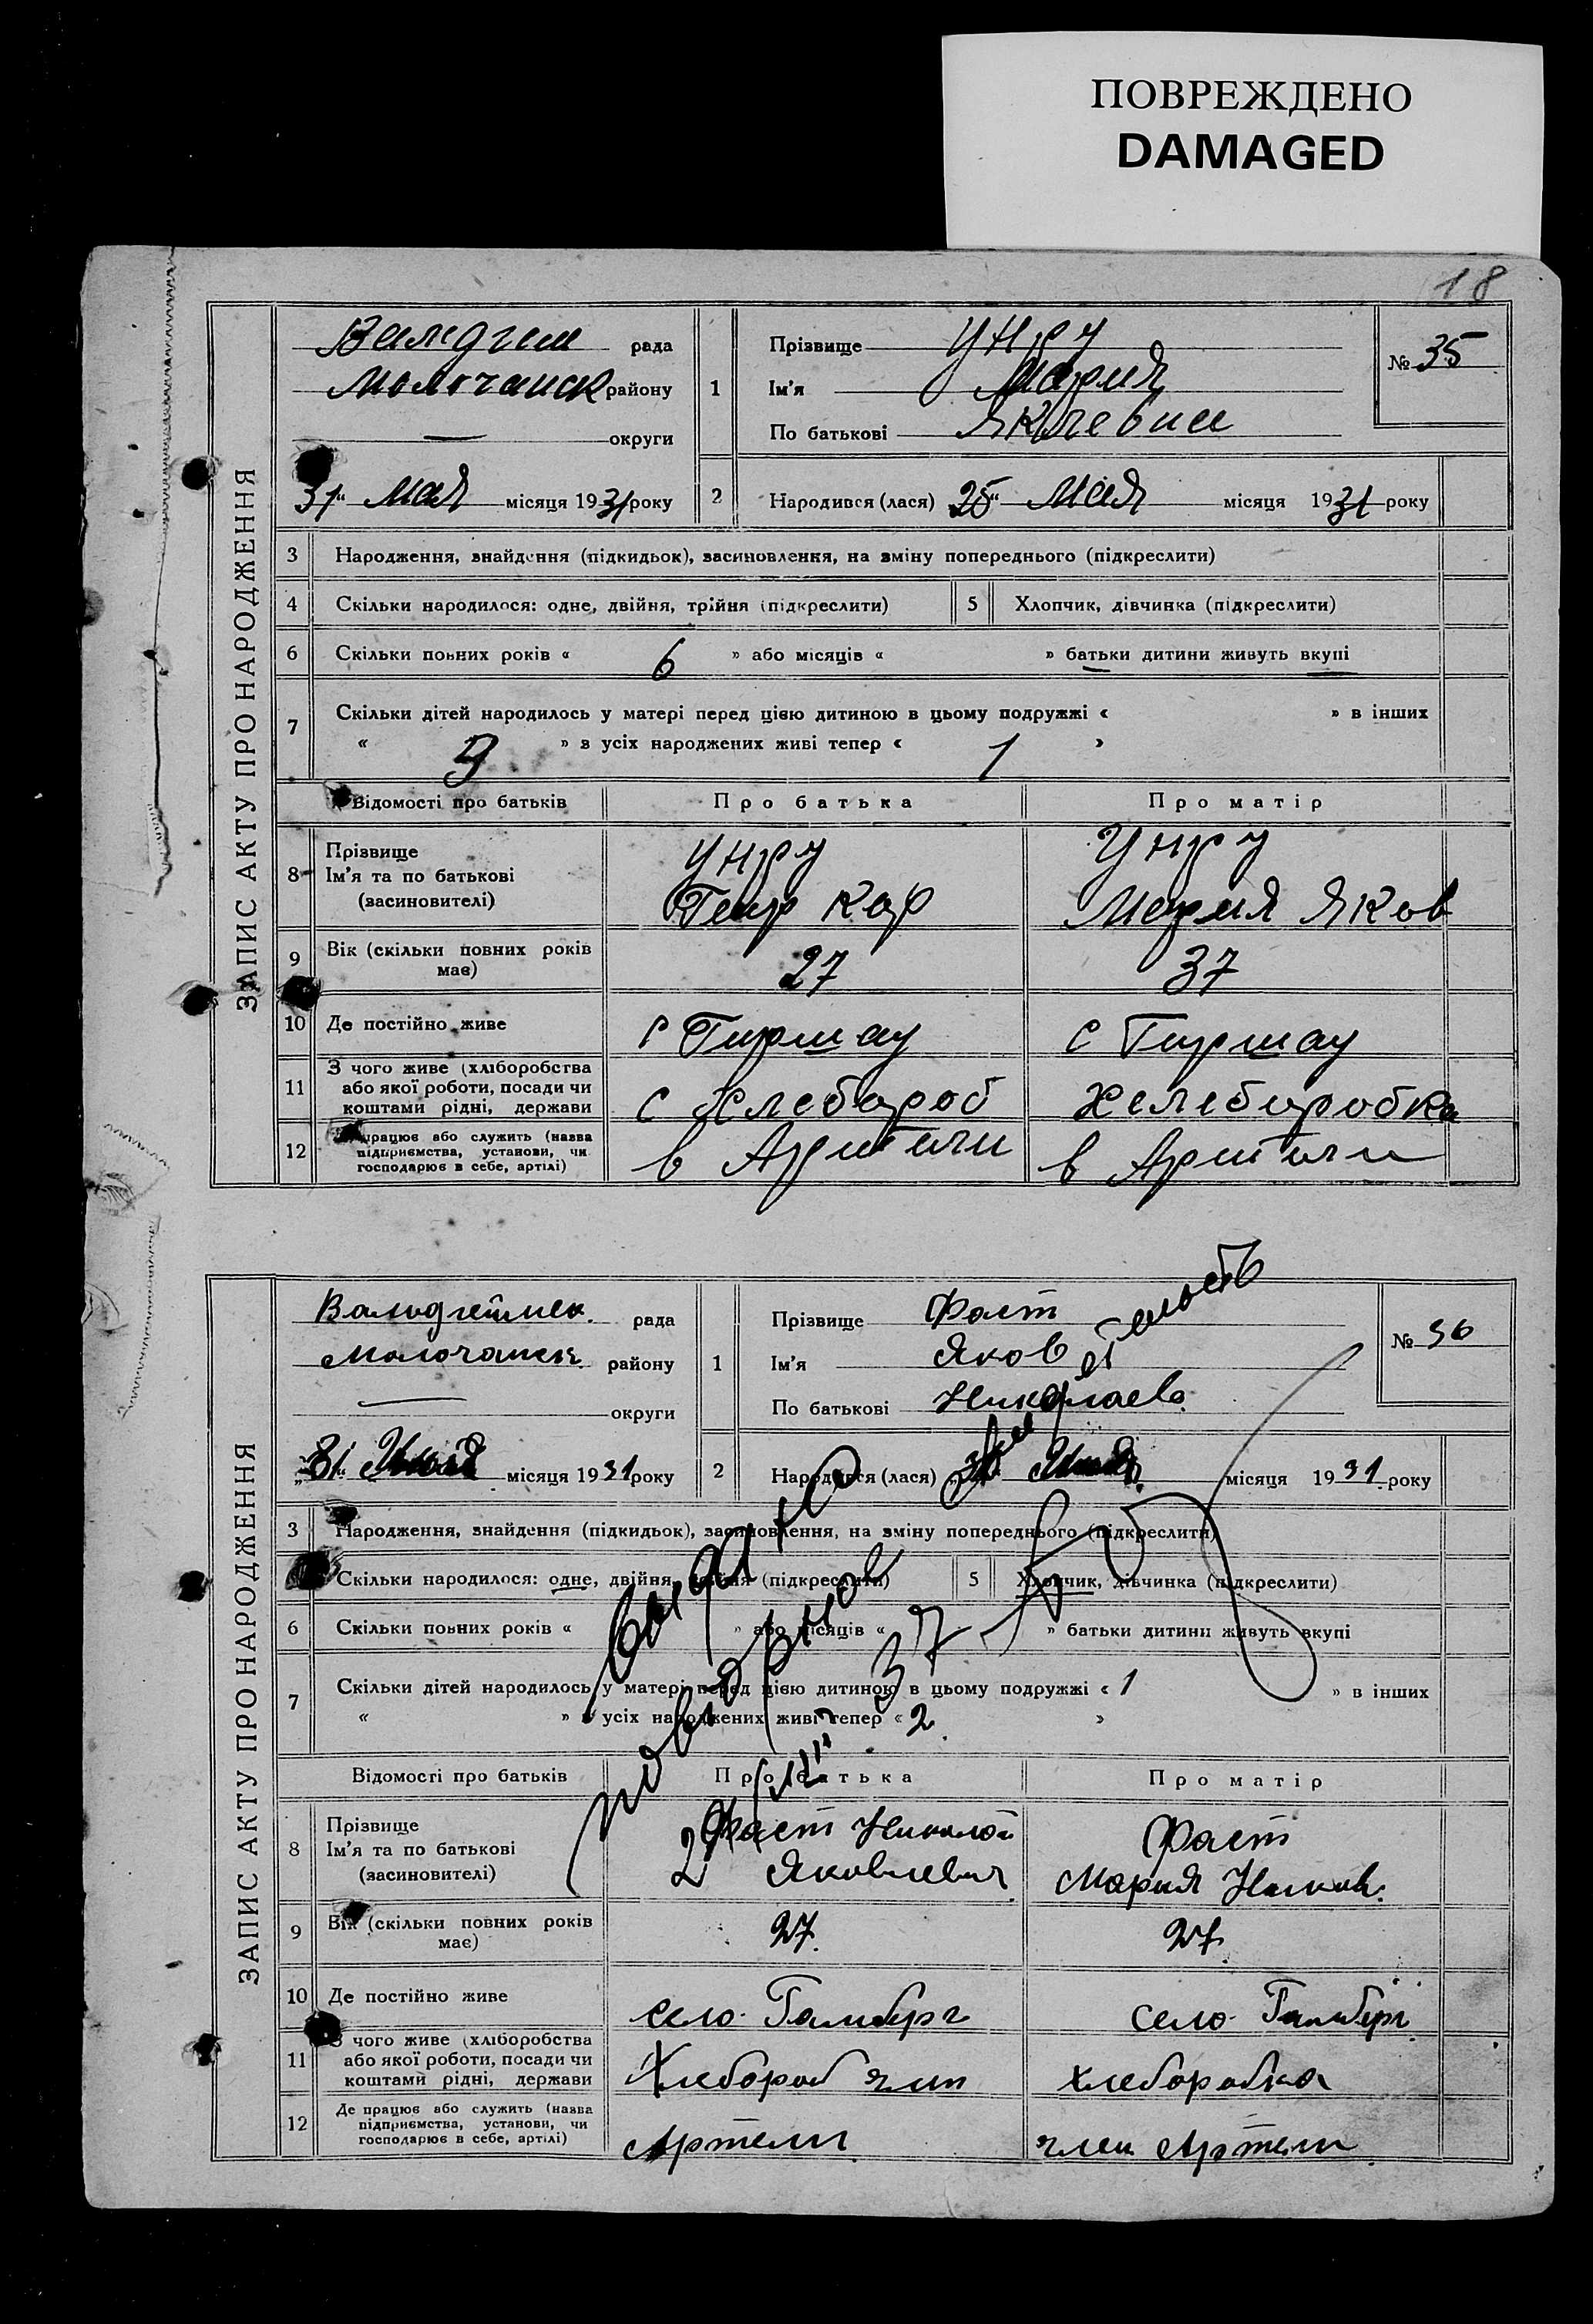 ПОВРЕЖДЕНО
DAMAGED
18
ЗАПИС АКТУ ПРО НАРОДЖЕННЯ
рада
Молочанск району
— округи
31" мая місяця 1931 року
1
Прізвище Унру
Ім'я Мария
По батькові
№ 35
2
Народився (лася) 25" мая місяця 1931 року
3 Народження, знайдення (підкидьок), засиновлення, на зміну попереднього (підкреслити)
4 Скільки народилося: одне, двійня, трійня (підкреслити)
5 Хлопчик, дівчинка (підкреслити)
6 Скільки повних років « 6 » або місяців « » батьки дитини живуть вкупі
7 Скільки дітей народилось у матері перед цією дитиною в цьому подружжі « » в інших
« » з усіх народжених живі тепер « 1 »
Відомості про батьків
Про батька
Про матір
8 Прізвище
Ім'я та по батькові
(засиновителі)
Унру
Кор
Унру
Мария Яков
9 Вік (скільки повних років
має)
27
37
10 Де постійно живе
с Гиршау
с Гиршау
11 З чого живе (хліборобства
або якої роботи, посади чи
коштами рідні, держави
с Хлебороб
Хелеборобка
12 працює або служить (назва
підприємства, установи, чи
господарює в себе, артілі)
в Артели
в Артели
ЗАПИС АКТУ ПРО НАРОДЖЕННЯ
Вальдгеймск. рада
Молочанск. району
— округи
„31" місяця 1931 року
1
Прізвище Фаст
Ім'я Яков
По батькові Николаев.
№ 36
2
Народився (лася) місяця 1931 року
3 Народження, знайдення (підкидьок), засиновлення, на зміну попереднього (підкреслити)
Скільки народилося: одне, двійня, трійня (підкреслити)
5 Хлопчик, дівчинка (підкреслити)
6 Скільки повних років « » або місяців « » батьки дитини живуть вкупі
7 Скільки дітей народилось у матері перед цією дитиною в цьому подружжі « 1 » в інших
« » з усіх народжених живі тепер « 2 »
выдано
повторное
37
Відомості про батьків
Про батька
Про матір
8 Прізвище
Ім'я та по батькові
(засиновителі)
Фаст Николай
Яковлевич
Фаст
Мария
9 Вік (скільки повних років
має)
27.
27.
10 Де постійно живе
село Гамберг
село Гамберг
11 З чого живе (хліборобства
або якої роботи, посади чи
коштами рідні, держави
Хлебороб член
хлеборобка
12 Де працює або служить (назва
підприємства, установи, чи
господарює в себе, артілі)
Артели
член Артели